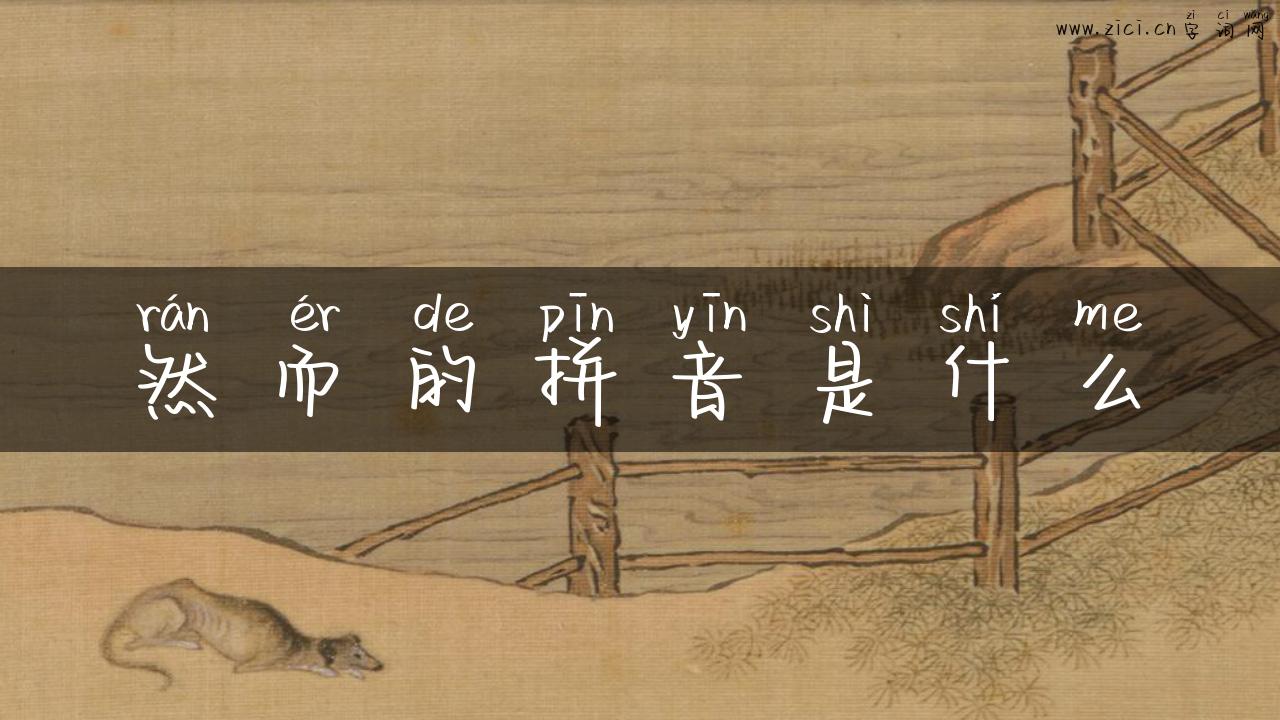 zì cí wǎng
www.zici.cn 字词网
rán ér de pīn yīn shì shí me
然而的拼音是什么